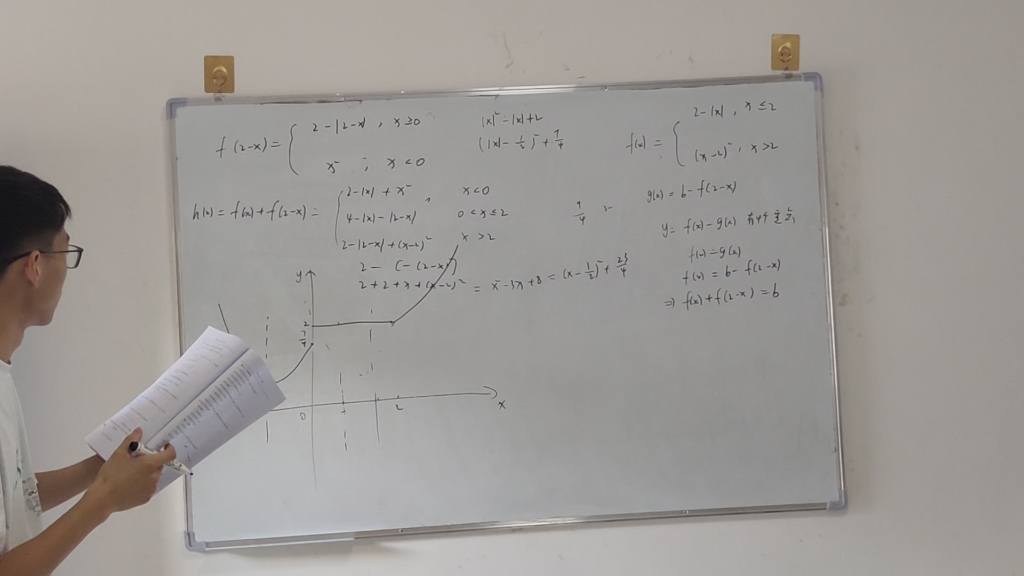 f(2-x) = { 2-|2-x| , x≥0
x² , x<0
|x|²-|x|+2
(|x|-1/2)²+7/4
f(x) = { 2-|x| , x≤2
(x-2)² , x>2
h(x) = f(x)+f(2-x) = { 2-|x|+x² , x<0
4-|x|-|2-x| 0<x≤2
2-|2-x|+(x-2)² x>2
2-(-(2-x))
2+2+x+(x-2)² = x²-3x+8 = (x-1/2)²+23/4
g(x) = b-f(2-x)
y = f(x)-g(x) 有4个零点
f(x)=g(x)
f(x) = b-f(2-x)
⇒ f(x)+f(2-x)=b
y
2
7/4
0
2
x